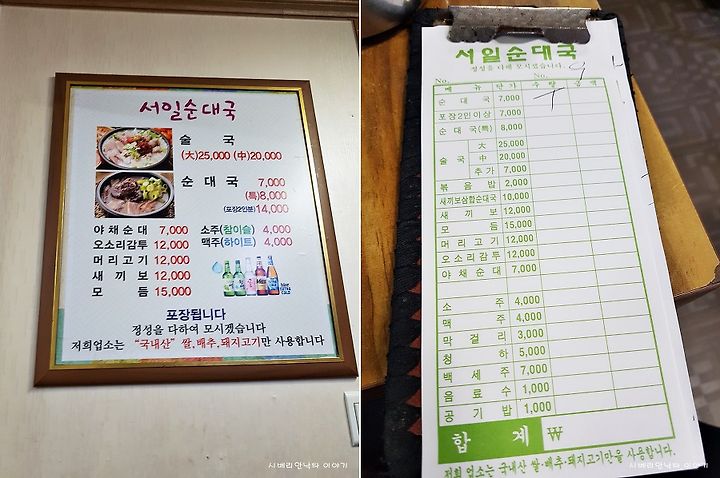 서일순대국
술 국
(大)25,000 (中)20,000
순 대 국 7,000
(특)8,000
(포장2인분)14,000
야채순대 7,000 소주(참이슬) 4,000
오소리감투 12,000 맥주(하이트) 4,000
머리고기 12,000
새 끼 보 12,000
모 듬 15,000
포장됩니다
정성을 다하여 모시겠습니다
저희업소는 "국내산" 쌀,배추,돼지고기만 사용합니다
시베리안낙타 이야기
서일순대국
정성을 다해 모시겠습니다.
No. No.
메 뉴 단 가 수 량 금 액
순 대 국 7,000
포장2인이상 7,000
순 대 국(특) 8,000
술 국 大 25,000
中 20,000
추 가 7,000
볶 음 밥 2,000
새끼보삼합순대국 10,000
새 끼 보 12,000
모 듬 15,000
머 리 고 기 12,000
오소리감투 12,000
야 채 순 대 7,000
소 주 4,000
맥 주 4,000
막 걸 리 3,000
청 하 5,000
백 세 주 7,000
음 료 수 1,000
공 기 밥 1,000
합 계 ₩
저희 업소는 국내산 쌀·배추·돼지고기만을 사용합니다.
시베리안낙타 이야기